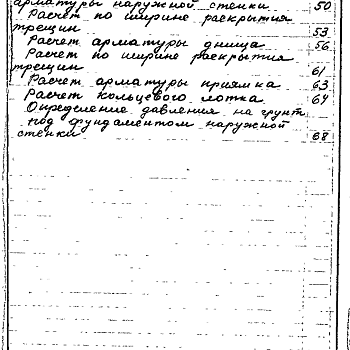 арматуры наружной стенки 50
Расчет по ширине раскрытия
трещин 53
Расчет арматуры днища 56
Расчет по ширине раскрытия
трещин 61
Расчет арматуры приямка 63
Расчет кольцевого лотка 64
Определение давления на грунт
под фундаментом наружной
стенки 68